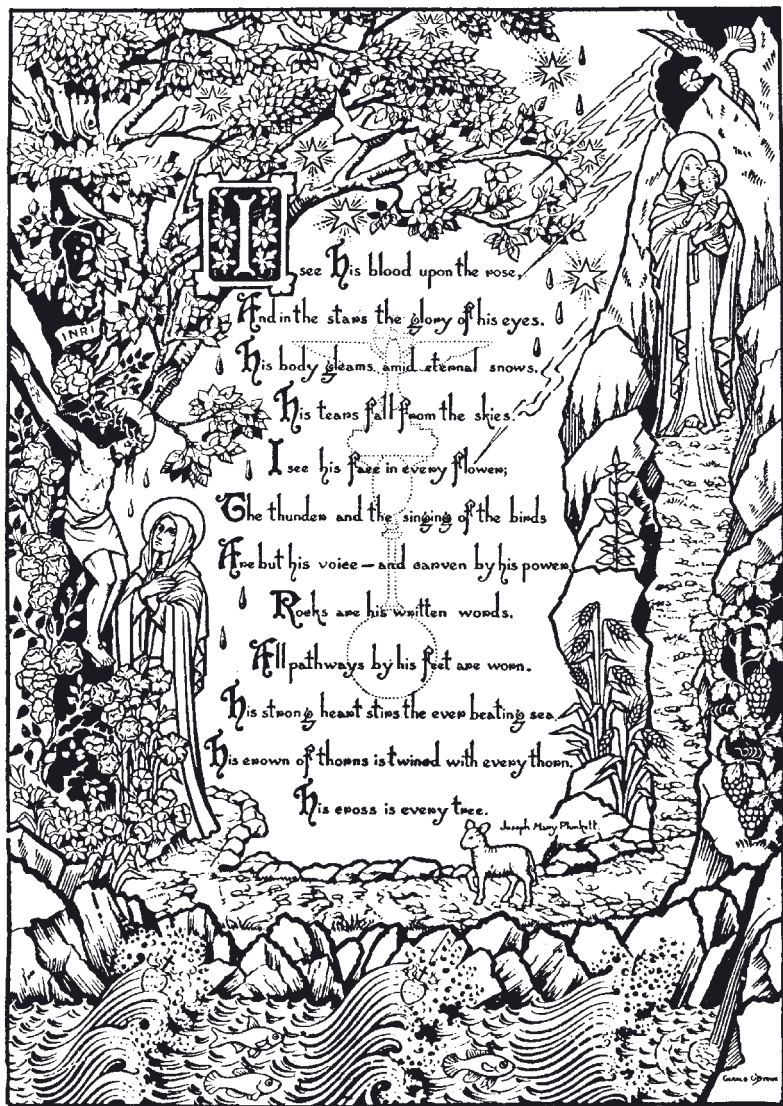 INRI
I see his blood upon the rose,
And in the stars the glory of his eyes.
His body gleams amid eternal snows,
His tears fall from the skies.
I see his face in every flower;
The thunder and the singing of the birds
Are but his voice — and carven by his power
Rocks are his written words.
All pathways by his feet are worn.
His strong heart stirs the ever beating sea.
His crown of thorns is twined with every thorn.
His cross is every tree.
Joseph Mary Plunkett.